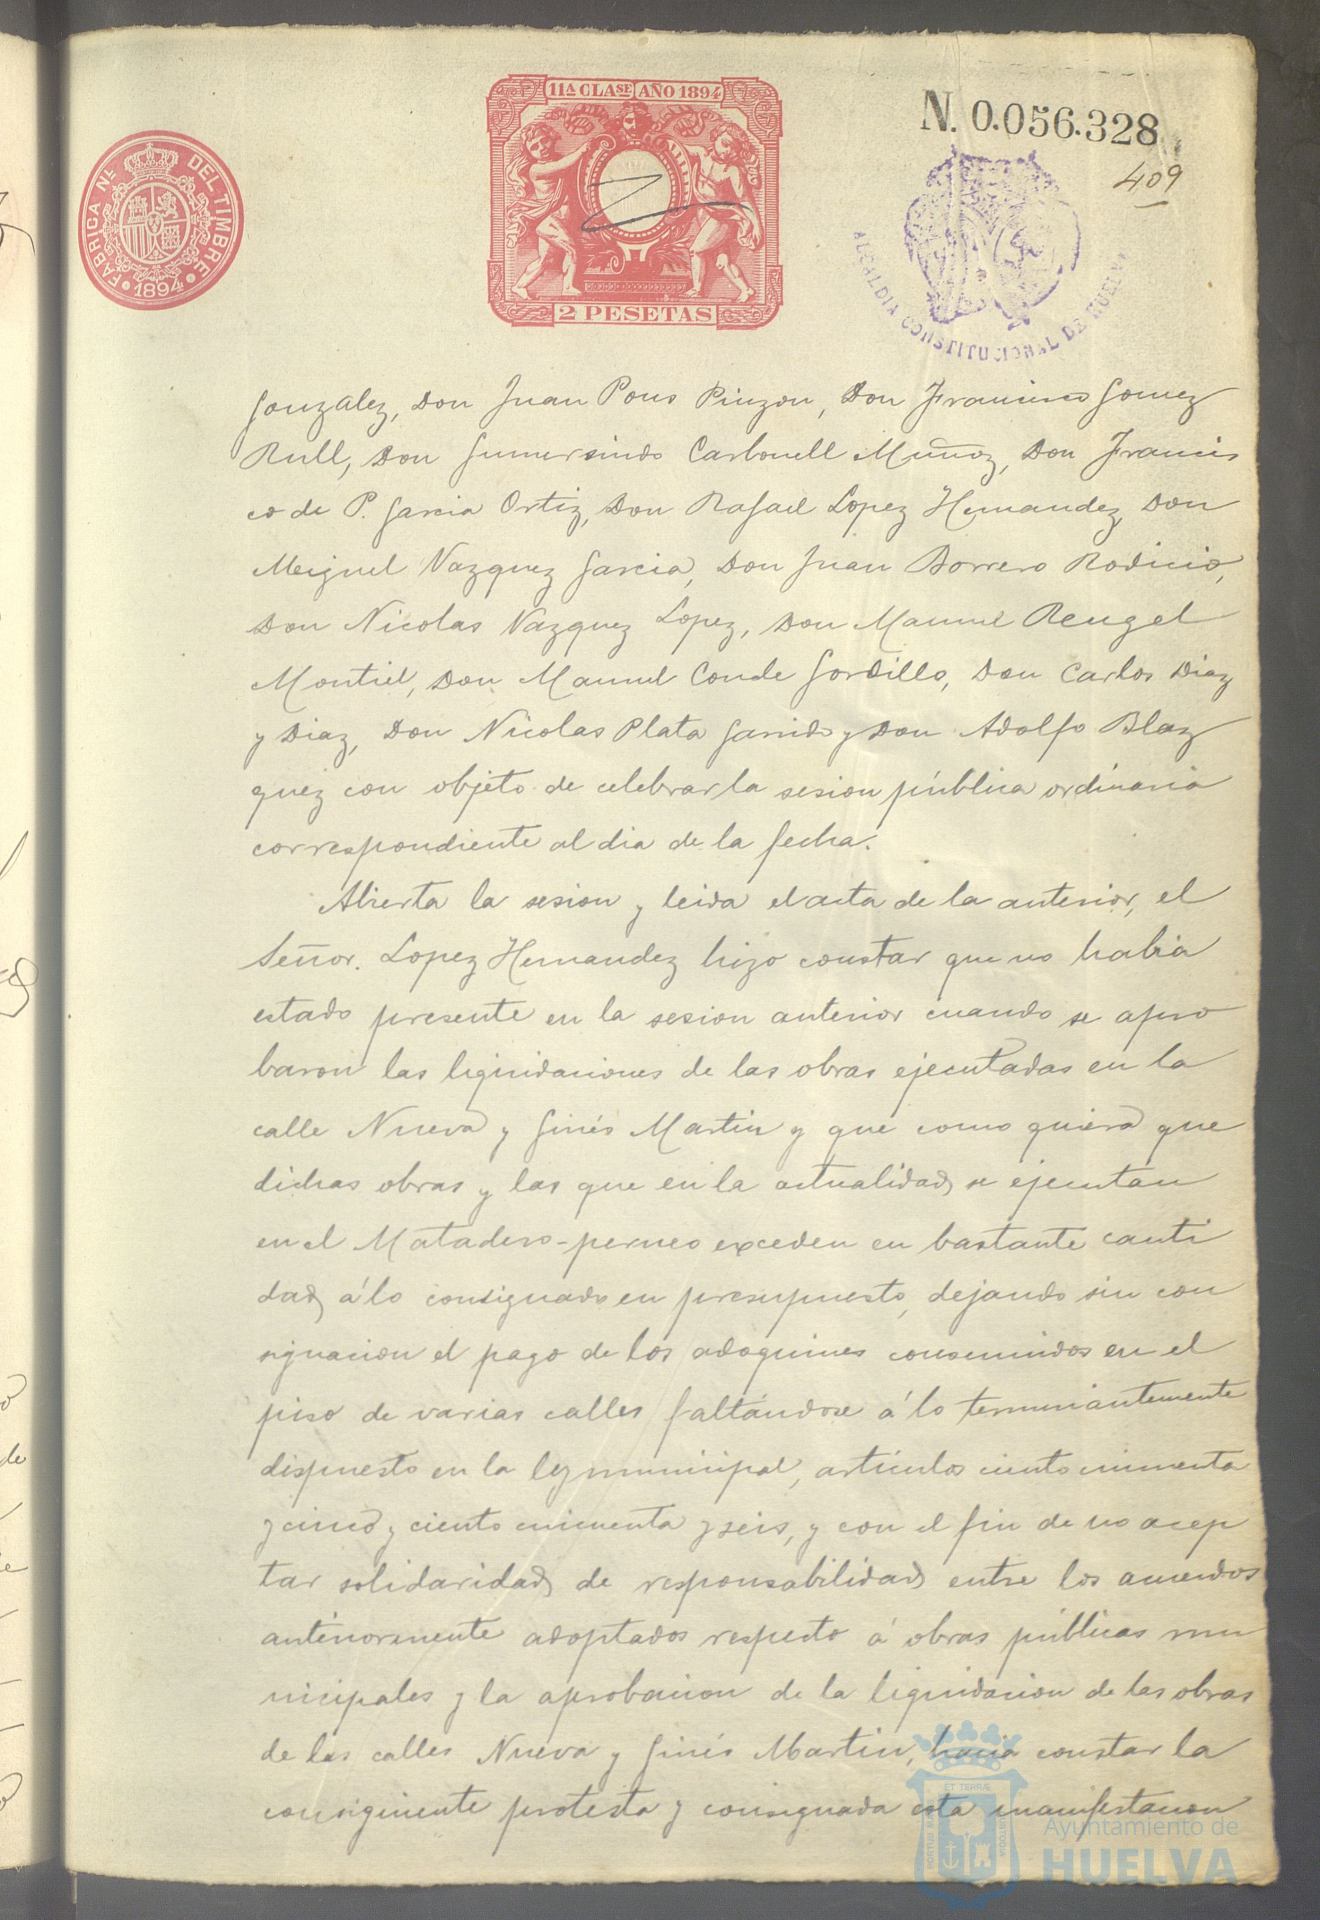 11A CLASE AÑO 1894
N. 0.056.328
409
FÁBRICA NL. DEL TIMBRE
1894
2 PESETAS
ALCALDIA CONSTITUCIONAL DE HUELVA
Gonzalez, Don Juan Pons Pinzon, Don Francisco Gomez
Rull, Don Gumersindo Carbonell Muñoz, Don Francis
co de P. Garcia Ortiz, Don Rafael Lopez Hernandez, Don
Miguel Vazquez Garcia, Don Juan Borrero Rodicio,
Don Nicolas Vazquez Lopez, Don Manuel Rengel
Montiel, Don Manuel Conde Gordillo, Don Carlos Diaz
y Diaz, Don Nicolas Plata Garrido y Don Adolfo Blaz
quez con objeto de celebrar la sesion pública ordinaria
correspondiente al dia de la fecha.
Abierta la sesion y leida el acta de la anterior, el
Señor. Lopez Hernandez hizo constar que no habia
estado presente en la sesion anterior cuando se apro
baron las liquidaciones de las obras ejecutadas en la
calle Nueva y Ginés Martin y que como quiera que
dichas obras y las que en la actualidad se ejecutan
en el Matadero-perneo exceden en bastante canti
dad á lo consignado en presupuesto, dejando sin con
signacion el pago de los adoquines consumidos en el
piso de varias calles faltándose á lo terminantemente
dispuesto en la ley municipal, artículos ciento cincuenta
y cinco y ciento cincuenta y seis, y con el fin de no acep
tar solidaridad de responsabilidad entre los acuerdos
anteriormente adoptados respecto á obras públicas mu
nicipales y la aprobacion de la liquidacion de las obras
de las calles Nueva y Ginés Martin, hacia constar la
consiguiente protesta y consignada esta manifestacion
ET TERRÆ
PORTUS MARIS
CUSTODIA
Ayuntamiento de
HUELVA